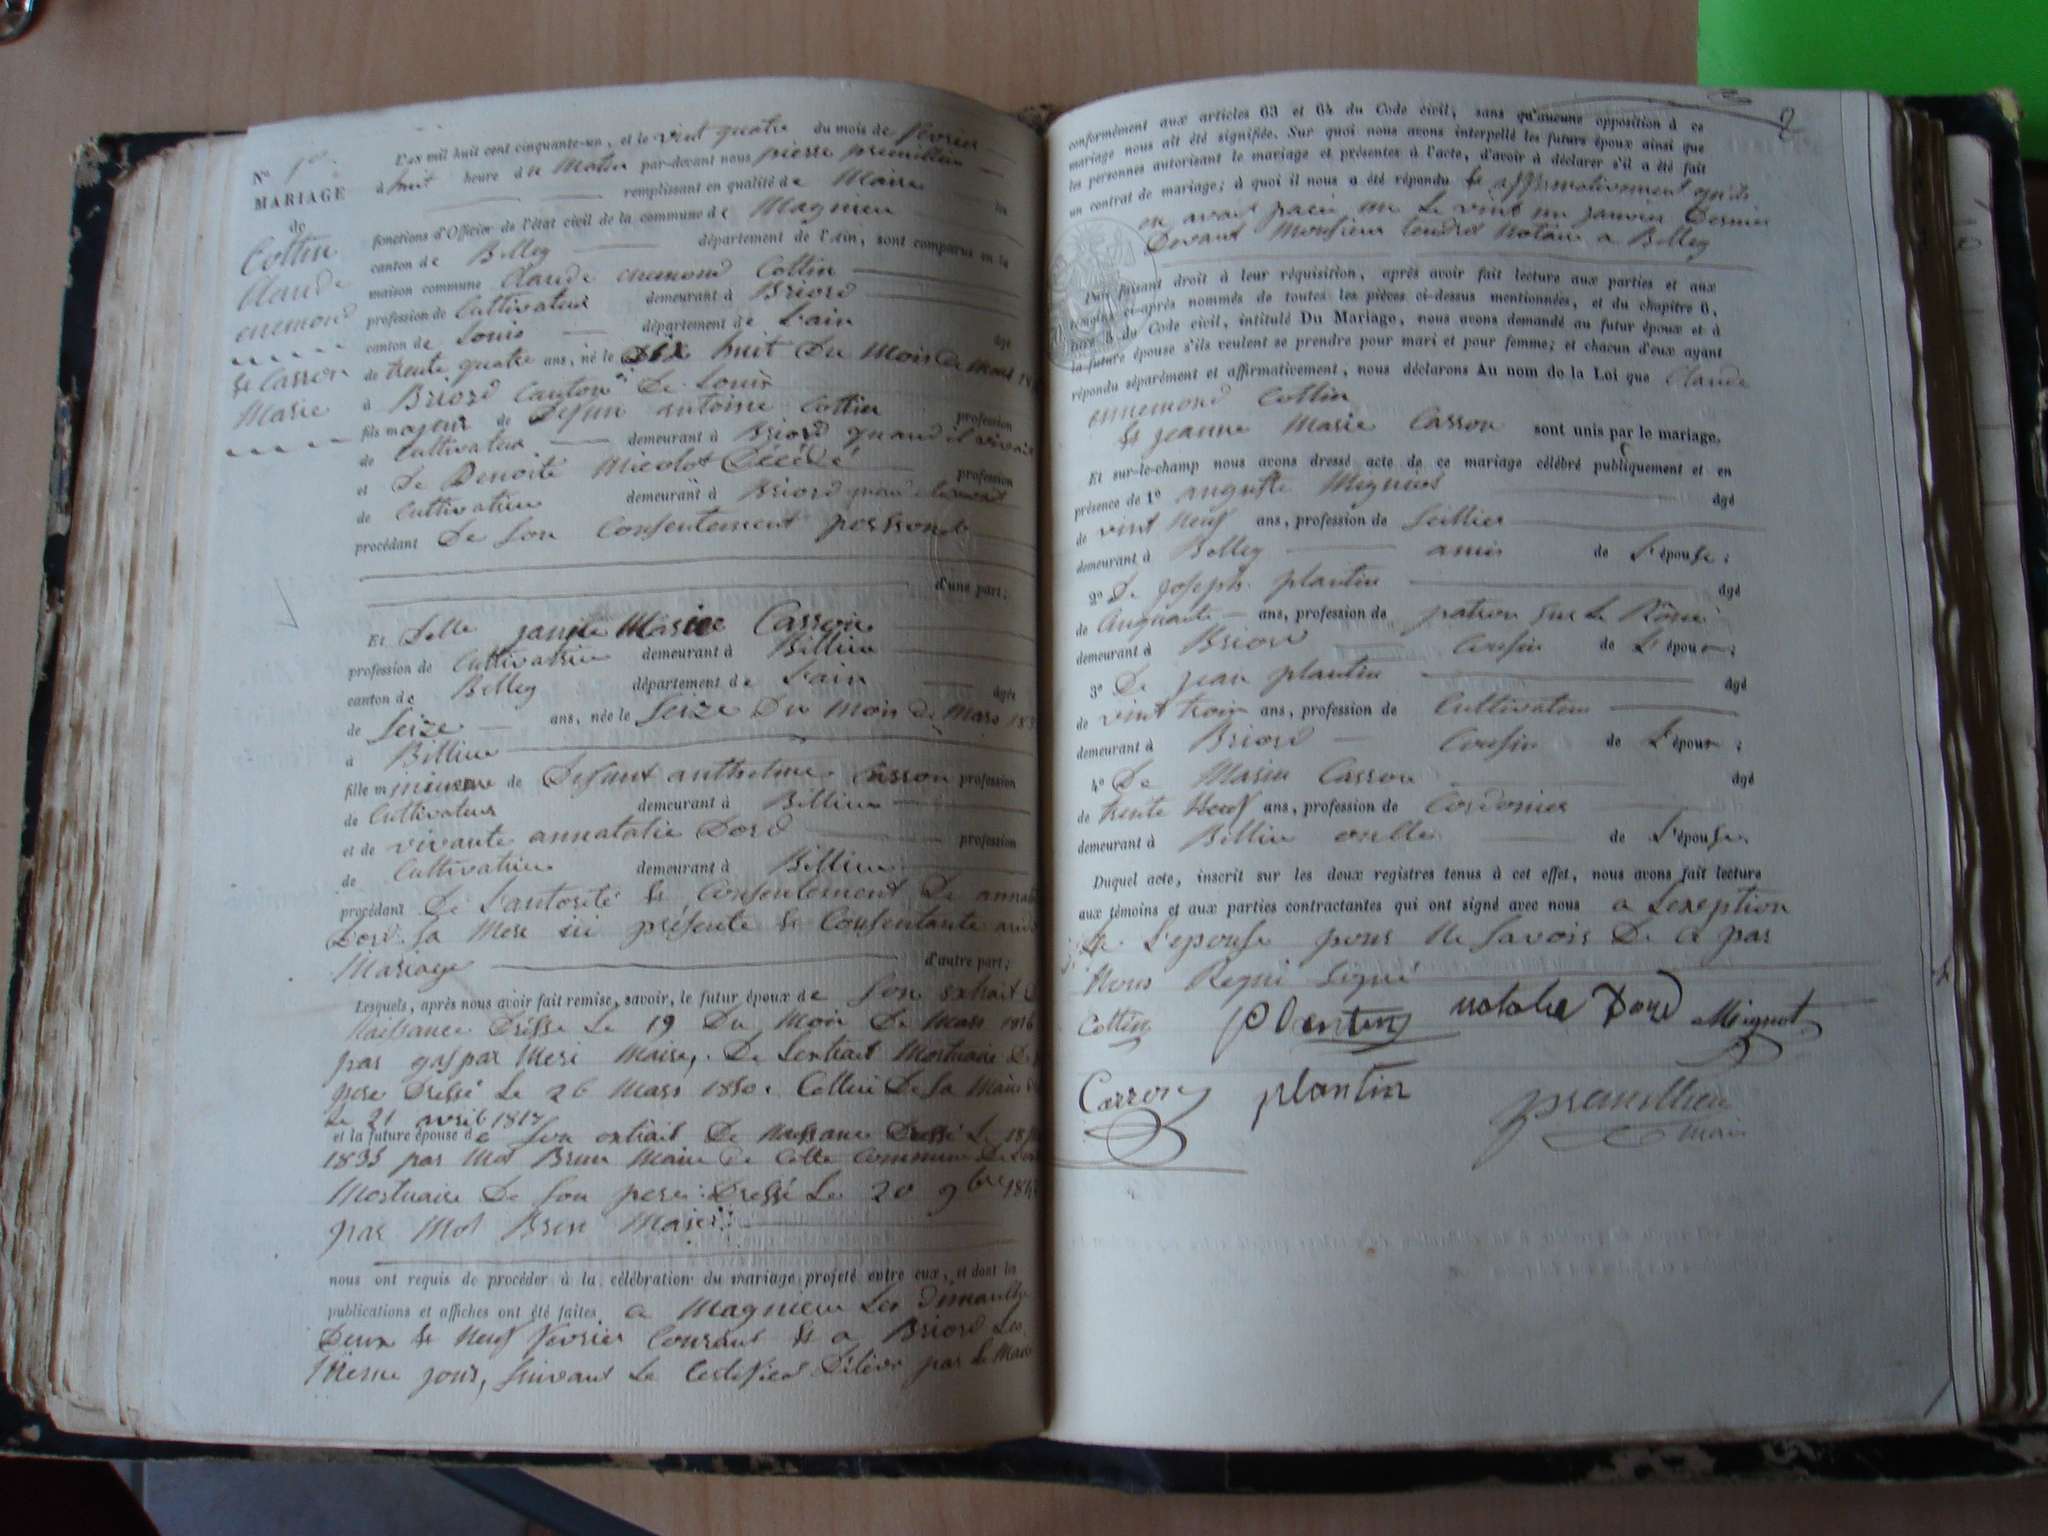 N° 1er
MARIAGE
de
Cottin
Claude
enemond
& Carron
Marie
L'an mil huit cent cinquante-un, et le vint quatre du mois de fevrier
à huit heure du Matin par-devant nous pierre premillieu
remplissant en qualité de Maire les
fonctions d'Officier de l'état civil de la commune de Magnieu
canton de Belley département de l'Ain, sont comparus en la
maison commune Claude enemond Cottin
profession de Cultivateur demeurant à Briord
canton de Louis département de L'ain âgé
de trente quatre ans, né le Dix huit Du Mois De Mars 18
à Briord Canton De Louis
fils majeur de Defun antoine Cottin profession
de Cultivateur demeurant à Briord quand il vivait
et De Benoite Micolot Décédé profession
de Cultivatrice demeurant à Briord
procédant De Son Consentement personel
d'une part;
Et Delle Marie Carron
profession de Cultivatrice demeurant à Billieu
canton de Belley département de L'ain âgée
de Seize ans, née le Seize Du Mois De Mars 183
à Billieu
fille mineure de Defunt anthelme Carron profession
de Cultivateur demeurant à Billieu
et de vivante annatalie Dord profession
de Cultivatrice demeurant à Billieu
procédant De L'autorité & Consentement De annat
Dord Sa Mere ici présente & Consentante
Mariage d'autre part;
Lesquels, après nous avoir fait remise, savoir, le futur époux de Son extrait
Naissance Dressé Le 19 Du Mois De Mars 1816
par gaspar Meri Maire, De Lextrait Mortuaire De
pere Dressé Le 26 Mars 1850. Cellui De Sa
Le 21 avril 1817
et la future épouse de Son extrait De Naissance Dressé Le 18
1835 par Mot Brun Maire De Cette Commune De
Mortuaire De Son pere Dressé Le 20 9bre 184
par Mot Brun Maire
nous ont requis de procéder à la célébration du mariage projeté entre eux, et dont la
publications et affiches ont été faites a Magnieu Les Dimanche
Deux & Neuf Fevrier Courant & a Briord Les
Meme jour, Suivant Le Certificat Délivre par Le Maire
2
conformément aux articles 63 et 64 du Code civil, sans qu'aucune opposition à ce
mariage nous ait été signifiée. Sur quoi nous avons interpellé les futurs époux ainsi que
les personnes autorisant le mariage et présentes à l'acte, d'avoir à déclarer s'il a été fait
un contrat de mariage; à quoi il nous a été répondu affirmativement qu'ils
en avait passé un Le vint un janvier Dernier
Devant Monsieur tendret Notaire a Belley
Puis faisant droit à leur réquisition, après avoir fait lecture aux parties et aux
témoins ci-après nommés de toutes les pièces ci-dessus mentionnées, et du chapitre 6,
titre 5 du Code civil, intitulé Du Mariage, nous avons demandé au futur époux et à
la future épouse s'ils veulent se prendre pour mari et pour femme; et chacun d'eux ayant
répondu séparément et affirmativement, nous déclarons Au nom de la Loi que Claude
ennemond Cottin
& jeanne Marie Carron sont unis par le mariage.
Et sur-le-champ nous avons dressé acte de ce mariage célébré publiquement et en
présence de 1° auguste Mignot âgé
de vint Neuf ans, profession de Sellier
demeurant à Belley amis de L'épouse;
2° De joseph plantin âgé
de Cinquante ans, profession de patron sur Le Rône
demeurant à Briord Cousin de L'époux;
3° De jean plantin âgé
de vint trois ans, profession de Cultivateur
demeurant à Briord Cousin de L'époux;
4° De Marin Carron âgé
de trente Neuf ans, profession de Cordonier
demeurant à Billieu oncle de L'épouse.
Duquel acte, inscrit sur les deux registres tenus à cet effet, nous avons fait lecture
aux témoins et aux parties contractantes qui ont signé avec nous a Lexeption
De L'epouse pour Ne Savoir De Ce par
Nous Requi Signé
Cottin plantin natalie Dord Mignot
Carron plantin premillieu
maire